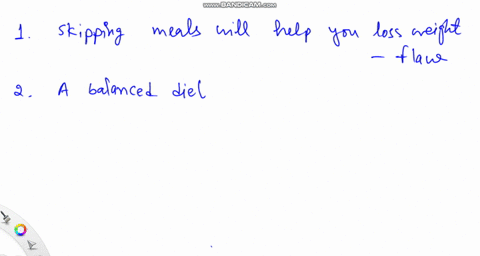 www.BANDICAM.com
1. skipping meals will help you loss weight
- flaw
2. A balanced diel